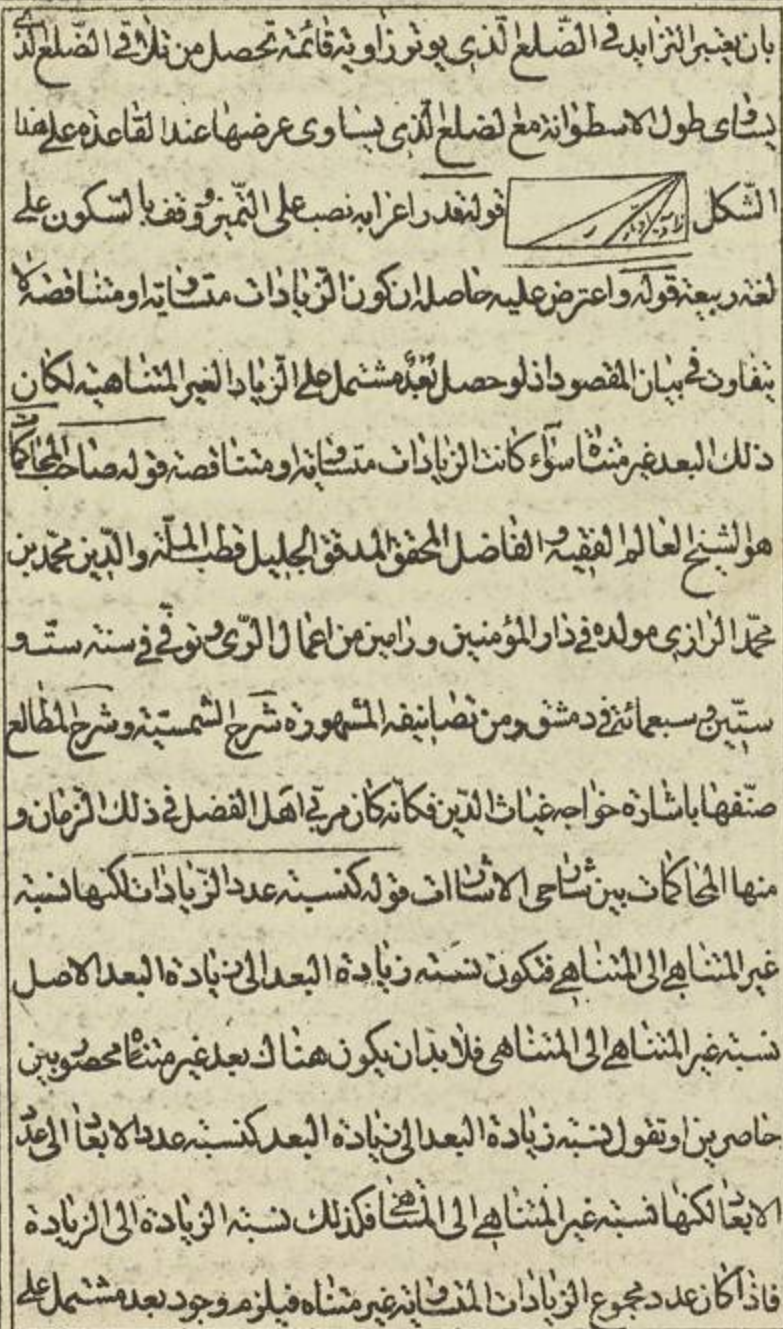 بان يعتبر التزايد في الضّلع الّذي يوتر زاوية قائمة تحصل من تلاقي الضّلع الّذي
يساوى طول الاسطوانة مع لضلع الّذي يساوى عرضها عند القاعدة على هذا
الشّكل قوله قدر اعرابه نصب على التّميز و وقف بالسّكون على
لغة ربيعة قوله و اعترض عليه حاصله ان كون الزّيادات متساوية او متناقصة لا
يتفاوت في بيان المقصود اذ لو حصل بُعدٌ مشتمل على الزّياد الغير المتناهية لكان
ذلك البعد غير متناه سوآء كانت الزيادات متساوية او متناقصة قوله صاحب المحاكمات
هو الشيخ العالم الفقيه و الفاضل المحقق المدقق الجليل قطب الملّة و الدّين محمّد بن
محمّد الرازي مولده في دار المؤمنين ورامين من اعمال الرّى و توفّي في سنة ستّ و
ستّين و سبعمائة في دمشق و من تصانيفه المشهورة شرح الشمسيّة و شرح المطالع
صنّفها باشارة خواجه غياث الدّين فكانّه كان مربّي اهل الفضل في ذلك الزّمان و
منها المحاكمات بين شارحى الاشارات قوله كنسبة عدد الزّيادات لكنها نسبة
غير المتناهي الى المتناهي فتكون نسبة زيادة البعد الى زيادة البعد الاصل
نسبة غير المتناهي الى المتناهى فلا بد ان يكون هناك بعد غير متناه محصور بين
حاصرين او تقول نسبة زيادة البعد الى زيادة البعد كنسبة عدد الابعاد الى عدد
الابعاد لكنها نسبة غير المتناهي الى المتناهي فكذلك نسبة الزيادة الى الزيادة
فاذا كان عدد مجموع الزيادات المتساوية غير متناه فيلزم وجود بعد مشتمل على